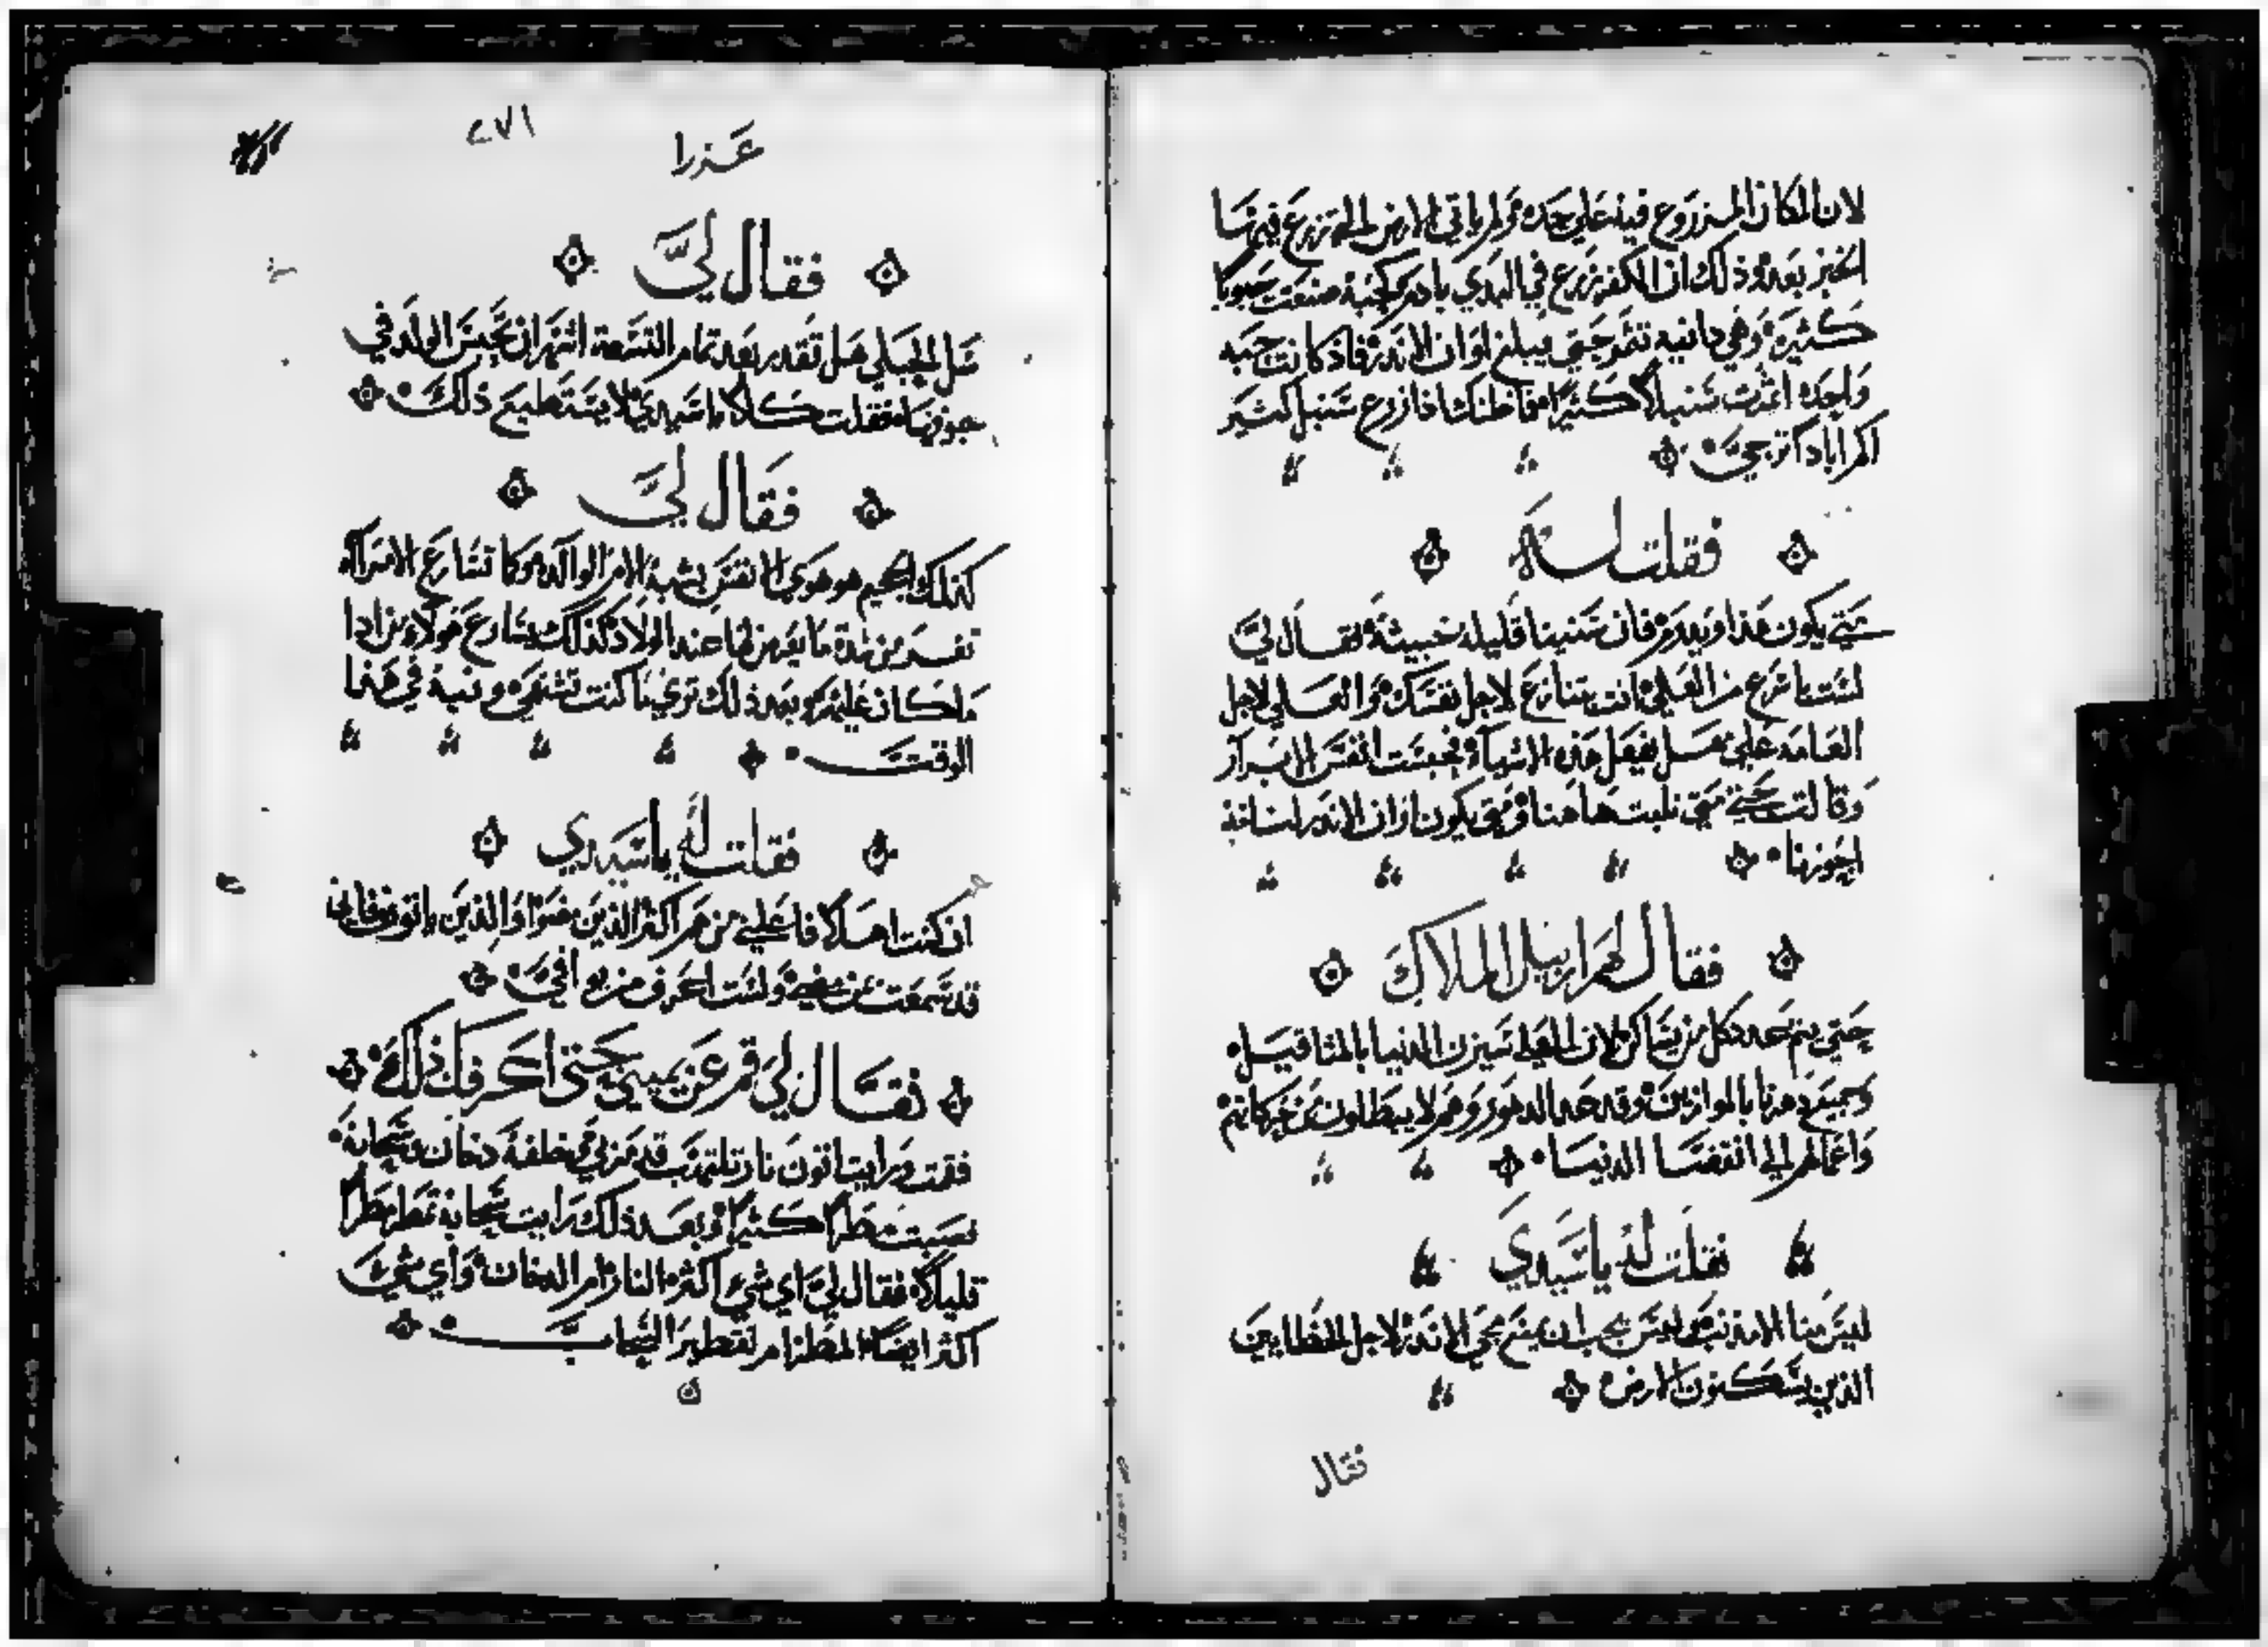 لان المكان المزروع فيه على حده ولم ياتي الارض المزرع فيها
الخير بعد وذلك ان الكفر زرع في البدي يا دم كحبة صنعت حبوبا
كثيرة وهي دانيه تنمو حتي يبلغ اوان الاندر فاذ كانت حبه
واحده اثمرت سنبلا كثيرا فاظنك اذا زرع سنبل كثير
اكم اباد كم تري
فقلت له
متي يكون هذا وبعد م فان سنينا قليله خبيثة فقال لي
لست باسرع من العلي انت تنازع لاجل نفسك والعلي لاجل
العامه علي هل يفعل هذه الاشياء فحبست انفس الابرار
وقالت حتي متي نلبث هاهنا ومتي يكون اوان الاندر لنا فيه
اجورنا
فقال لهم ارابيل الملاك
حتي يتم عدد كل من يشاكل لان العلي سيزن الدنيا بالمثاقيل
وجميع دهرنا بالموازين وقد عد الدهور وهم لا يبطلون عن حركاتهم
واعمالهم الي انقضا الدنيا
فقلت له يا سيدي
ليس منا الا مذنب وليس يجب ان يمنع مجي الاندر لاجل الخطايين
الذين يسكنون الارض
فقال
٢٧١
عزرا
فقال لي
سل الحبلي هل تقدر بعد تمام التسعة اشهر ان تحبس الولد في
جوفها فقلت كلا يا سيدي لا يستطيع ذلك
فقال لي
كذلك الجحيم هو هوي الانفس يشبه الام الوالده وكما تسارع الامراه
نفسه من شدة ما يعرض لها عند الولاد كذلك يسارع هولاء من ادا
ما كان عليهم وبعد ذلك تري ما كنت تشتهي وتنبه في هذا
الوقت
فقلت له يا سيدي
ان كنت اهلا فاعلمني من هم اكثر الذين مضوا والذين ياتون فاني
قد سمعت من مضي ولست اعرف من يوافي
فقال لي قم عن يميني حتي اعرفك ذلك
فقمت ورايت اتون نار تلتهب قد مر بي وخلفه دخان وسحابة
فصبت مطرا كثيرا وبعد ذلك رايت سحابة تمطر مطرا
قليلا فقال لي اي شيء اكثر النار ام الدخان واي شيء
اكثر ايضا المطر ام تقطير السحاب